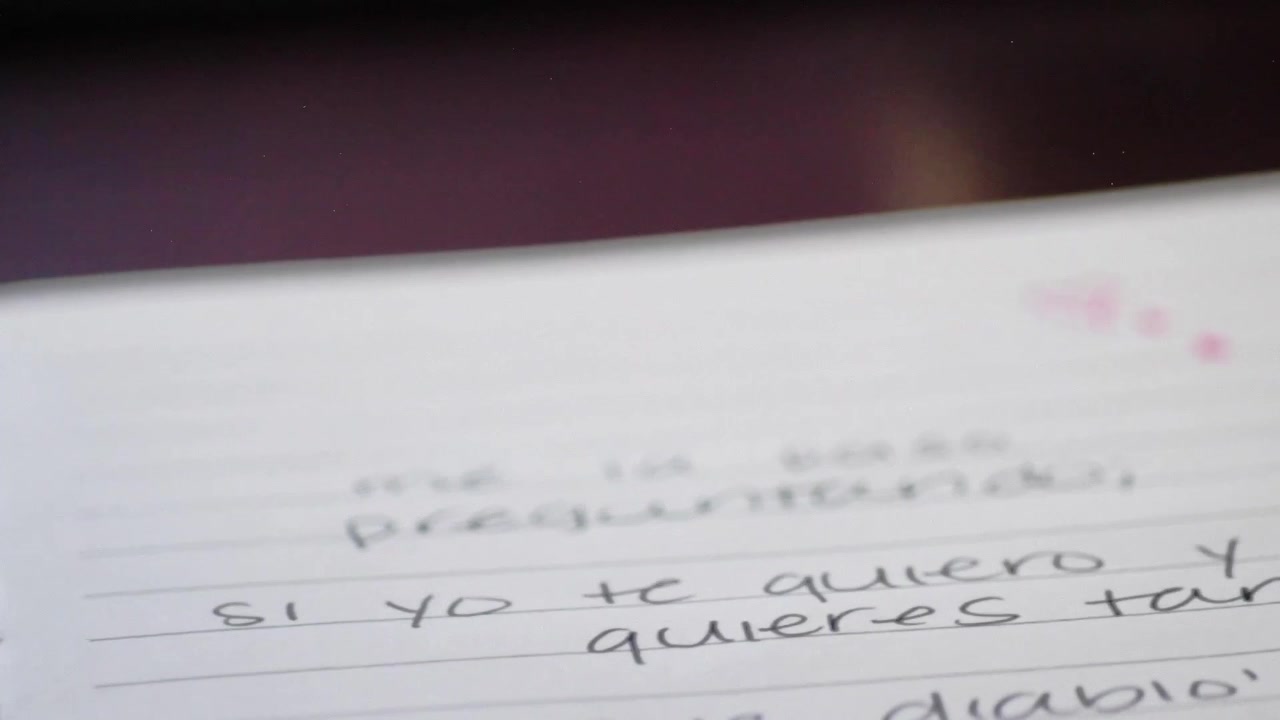 me la paso
preguntando,
si yo te quiero y
quieres tan
diablo